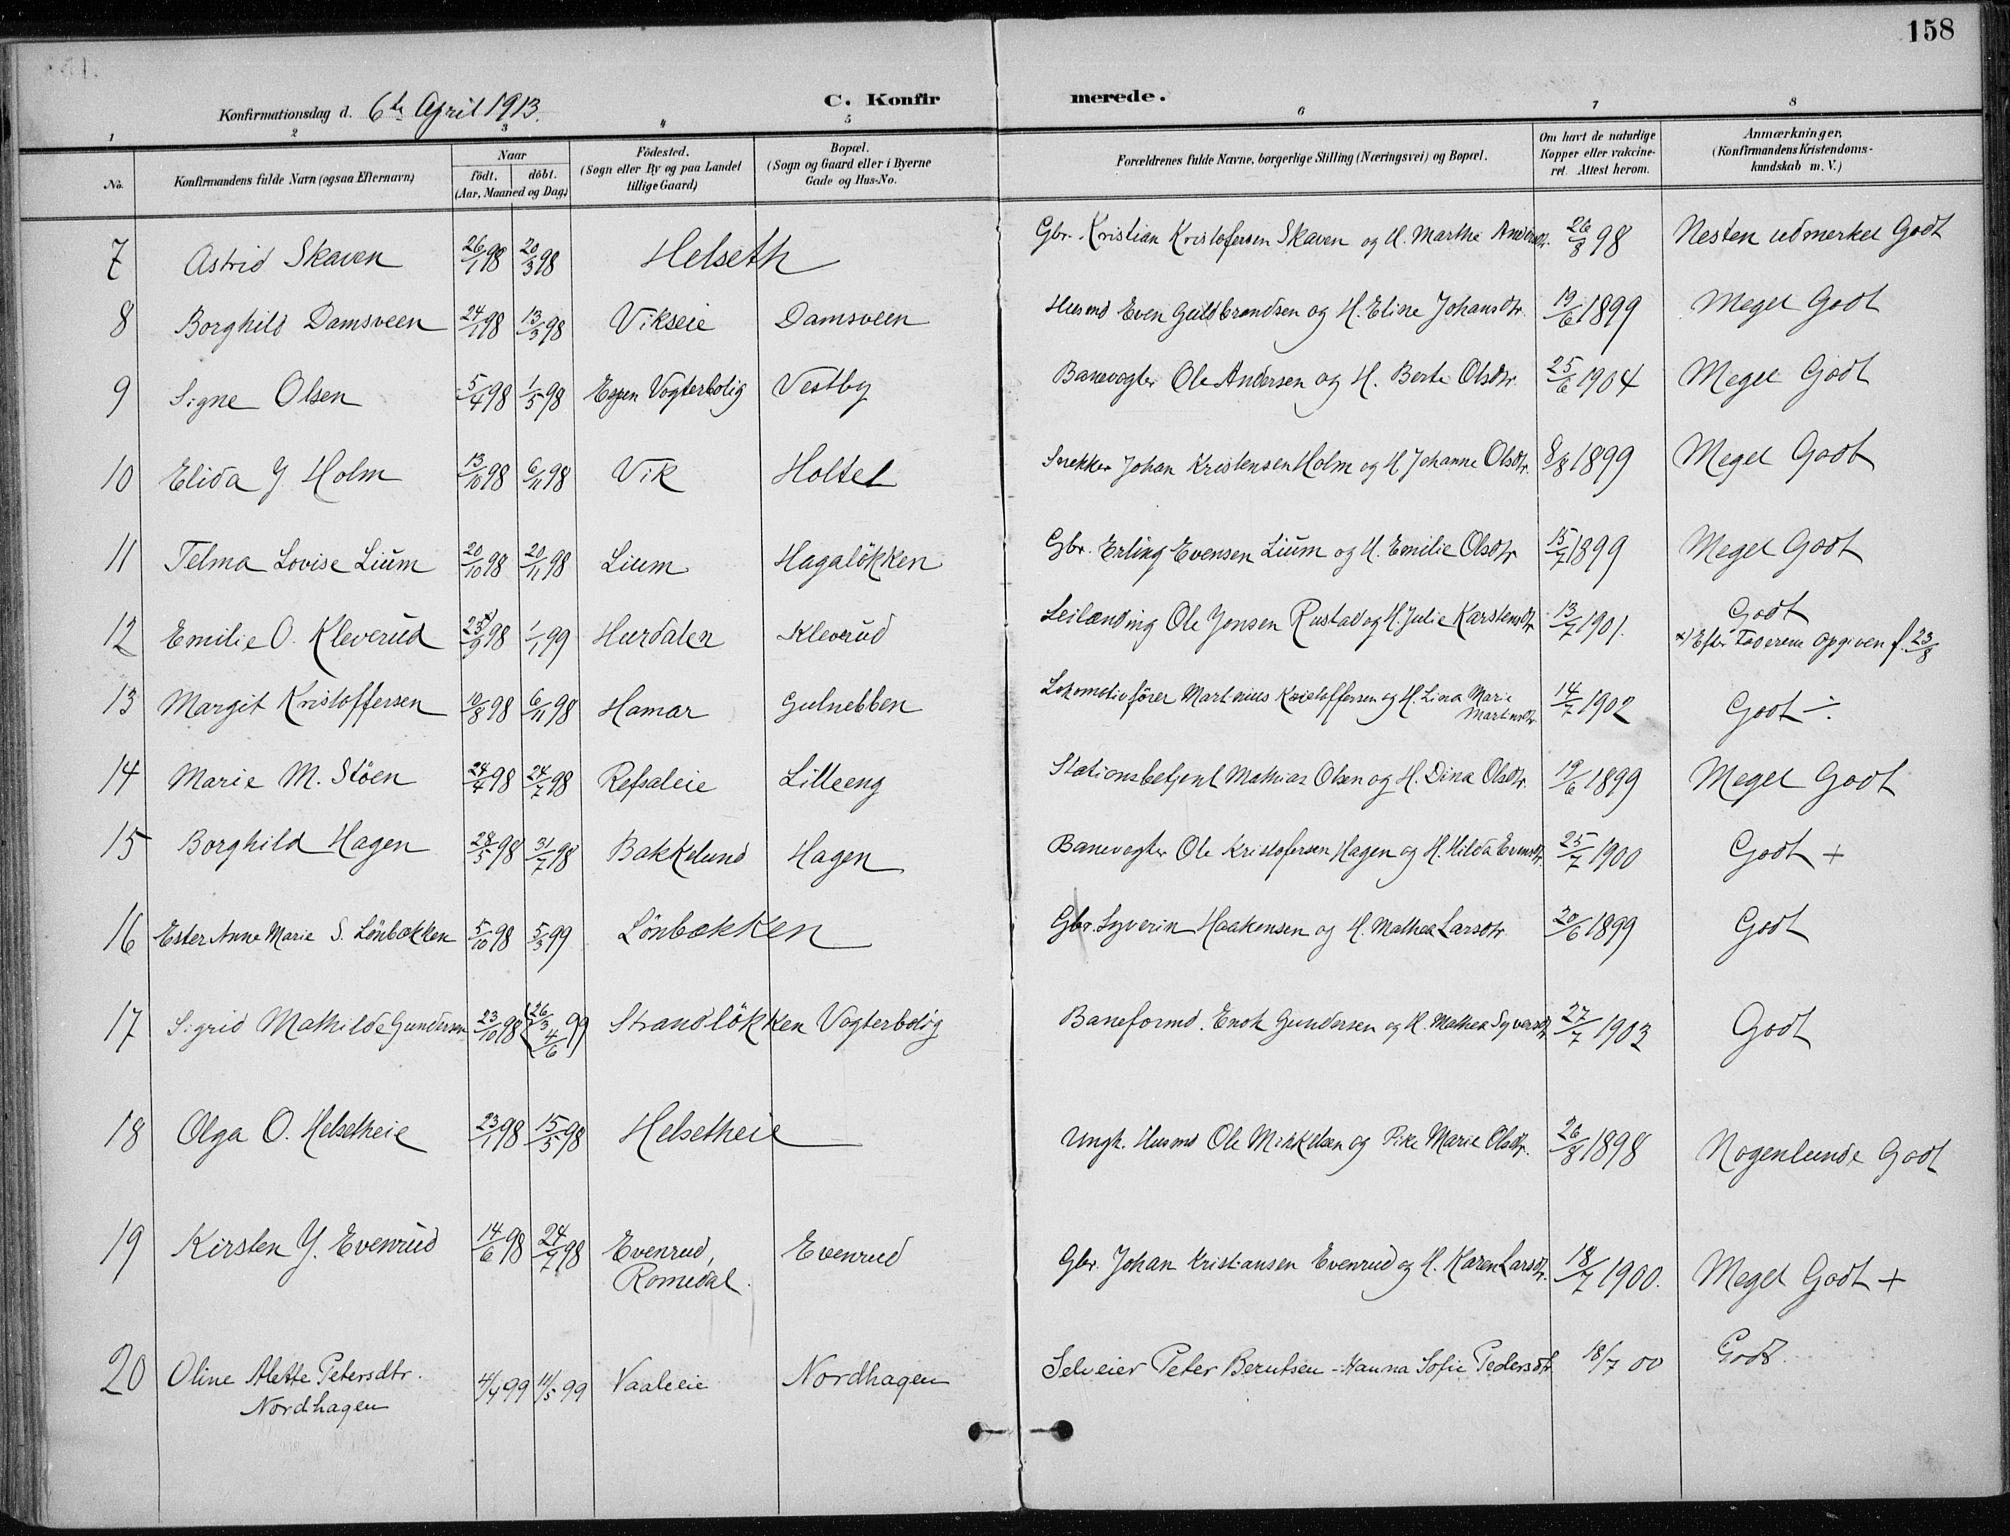 158
Konfirmationsdag d. 6te April 1913.
C. Konfirmerede.
1 2 3 4 5 6 7 8
No. Konfirmandens fulde Navn (ogsaa Efternavn) Naar födt. döbt. (Aar, Maaned og Dag.) Födested. (Sogn eller By og paa Landet tillige Gaard) Bopæl. (Sogn og Gaard eller i Byerne Gade og Hus-No. Forældrenes fulde Navne, borgerlige Stilling (Næringsvei) og Bopæl. Om havt de naturlige Kopper eller vakcineret. Attest herom. Anmærkninger. (Konfirmandens Kristendomskundskab m. V.)
7 Astrid Skaven 26/1 98 20/3 98 Helseth Gbr. Kristian Kristofersen Skaven og H. Marthe Andersdtr. 26/8 98 Nesten udmerket Godt
8 Borghild Damsveen 24/1 98 13/3 98 Vikseie Damsveen Husmd Even Guldbrandsen og H. Eline Johansdtr. 19/6 1899 Meget Godt
9 Signe Olsen 5/4 98 1/5 98 Espen Vogterbolig Vestby Banevogter Ole Andersen og H. Berte Olsdtr. 25/6 1904 Meget Godt
10 Elida J Holm 13/10 98 6/11 98 Vik Holtet Snekker Johan Kristensen Holm og H Johanne Olsdtr. 8/8 1899 Meget Godt
11 Telma Lovise Lium 20/10 98 20/11 98 Lium Hagalökken Gbr. Erling Evensen Lium og H. Emilie Olsdtr 15/7 1899 Meget Godt
12 Emilie O. Kleverud 23/9 x) 98 1/1 99 Hurdalen Kleverud Leilænding Ole Jensen Rustad og H. Julie Karstensdtr 13/7 1901. Godt
x) Efter Faderens opgiven f. 23/8
13 Margit Kristoffersen 10/8 98 6/11 98 Hamar Gulnebben Lokomotivförer Martinius Kristoffersen og H. Lina Marie Martinsdtr. 14/7 1902 Godt ÷
14 Marie M. Stöen 24/4 98 24/7 98 Refsaleie Lilleeng Stationsbetjent Mathias Olsen og H. Dina Olsdtr. 19/6 1899 Meget Godt
15 Borghild Hagen 28/5 98 31/7 98 Bakkelund Hagen Banevogter Ole Kristofersen Hagen og H. Hilda Evensdtr. 25/7 1900 Godt +
16 Ester Anne Marie S. Lönbækken 5/10 98 5/3 99 Lönbækken Gbr. Syverin Haakensen og H. Mathea Larsdtr. 20/6 1899 Godt
17 Sigrid Mathilde Gundersen 23/10 98 26/3 4/6 99 Strandlökken Vogterbolig Baneformd. Enok Gundersen og H. Mathea Syversdtr 27/7 1903 Godt
18 Olga O. Helsetheie 23/1 98 15/5 98 Helsetheie Ungk. Husmd Ole Mikkelsen og Pike Marie Olsdtr. 26/8 1898 Nogenlunde Godt
19 Kirsten J. Evenrud 14/6 98 24/7 98 Evenrud, Romedal. Evenrud Gbr. Johan Kristiansen Evenrud og H. Karen Larsdtr. 18/7 1900. Meget Godt +
20 Oline Alette Petersdtr. Nordhagen 4/4 99 11/5 99 Vaaleeie Nordhagen Selveier Peter Berntsen - Hanna Sofie Pedersdtr 18/7 00 Godt.